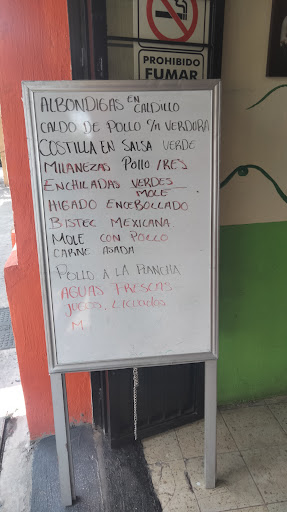 PROHIBIDO
FUMAR
ALBONDIGAS EN CALDILLO
CALDO DE POLLO C/N VERDURA
COSTILLA EN SALSA VERDE
MILANEZAS POLLO / RES
ENCHILADAS VERDES
MOLE
HIGADO ENCEBOLLADO
BISTEC MEXICANA
MOLE CON POLLO
CARNE ASADA
POLLO A LA PLANCHA
AGUAS FRESCAS
JUGOS, LICUADOS
M